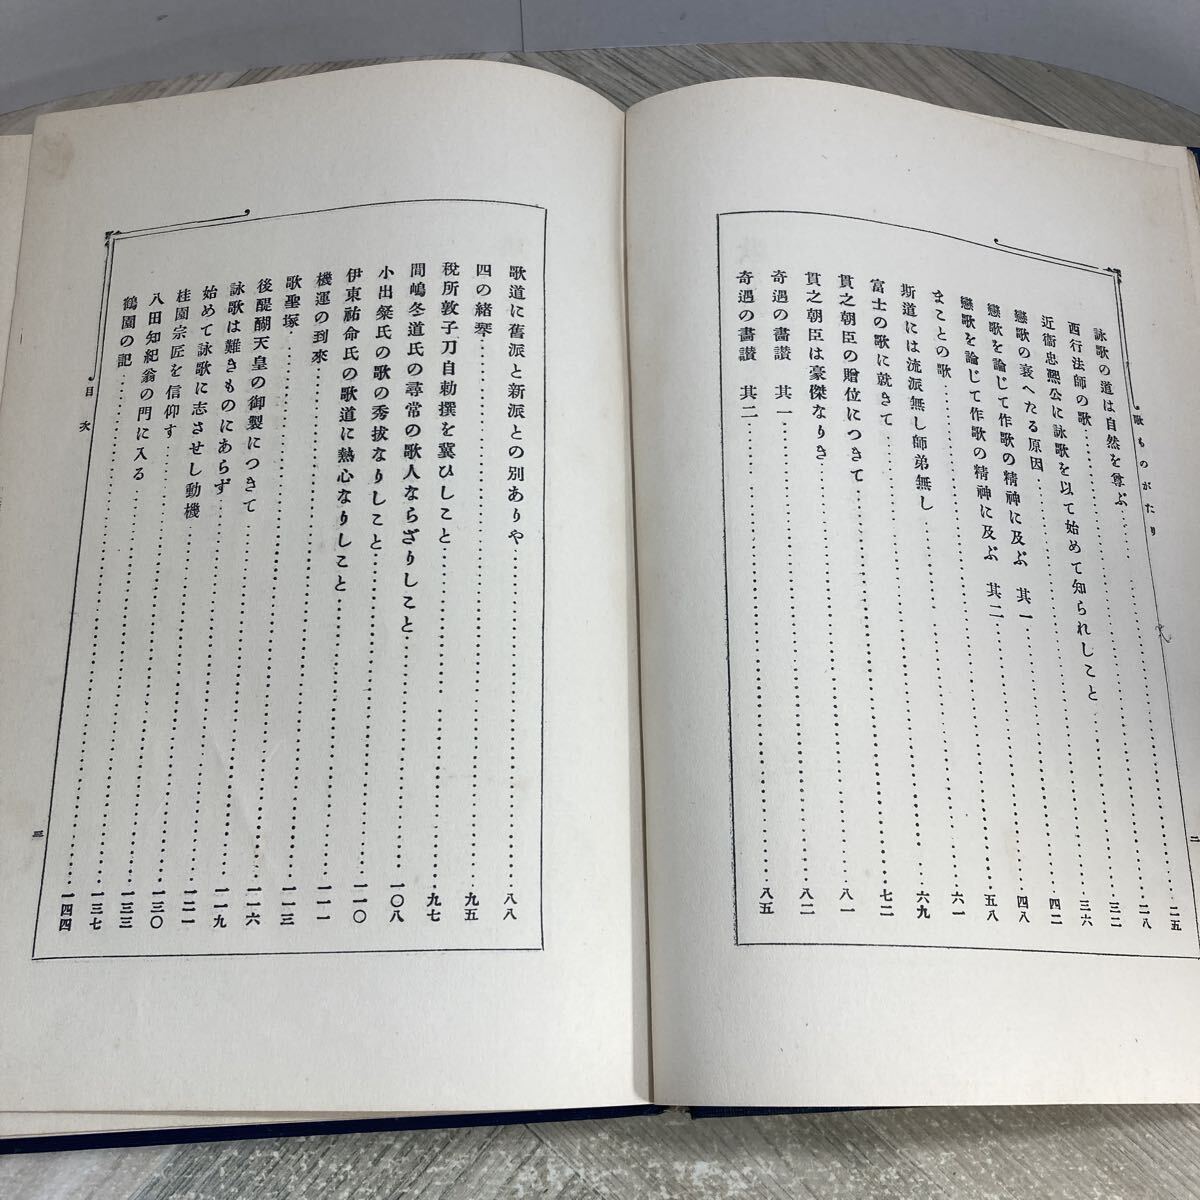 歌ものがたり
二
詠歌の道は自然を尊ぶ……二五
西行法師の歌……二八
近衞忠煕公に詠歌を以て始めて知られしこと……三二
戀歌の衰へたる原因……三六
戀歌を論じて作歌の精神に及ぶ 其一……四二
戀歌を論じて作歌の精神に及ぶ 其二……四八
まことの歌……五八
斯道には流派無し師弟無し……六一
富士の歌に就きて……六九
貫之朝臣の贈位につきて……七二
貫之朝臣は豪傑なりき……八一
奇遇の畫讃 其一……八二
奇遇の畫讃 其二……八五
歌道に舊派と新派との別ありや……八八
四の緒琴……九五
税所敦子刀自勅撰を冀ひしこと……九七
間嶋冬道氏の尋常の歌人ならざりしこと……一〇八
小出粲氏の歌の秀拔なりしこと……一一〇
伊東祐命氏の歌道に熱心なりしこと……一一一
機運の到來……一一三
歌聖塚……一一六
後醍醐天皇の御製につきて……一一九
詠歌は難きものにあらず……一二一
始めて詠歌に志させし動機……一三〇
桂園宗匠を信仰す……一三三
八田知紀翁の門に入る……一三七
鶴園の記……一四四
目次
三